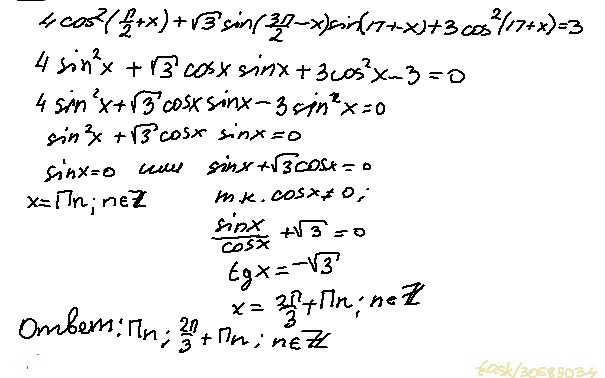 4cos²(π/2+x)+√3 sin(3π/2−x)sin(π+x)+3cos²(π+x)=3
4 sin²x + √3 cosx sinx + 3cos²x−3=0
4 sin²x+√3 cosx sinx−3sin²x=0
sin²x +√3 cosx sinx=0
sinx=0 или sinx+√3cosx=0
x=Πn; n∈ℤ т.к. cosx≠0;
sinx/cosx +√3 =0
tgx=−√3
x= 2π/3+Πn; n∈ℤ
Ответ: Πn; 2π/3+Πn; n∈ℤ
task/30688034